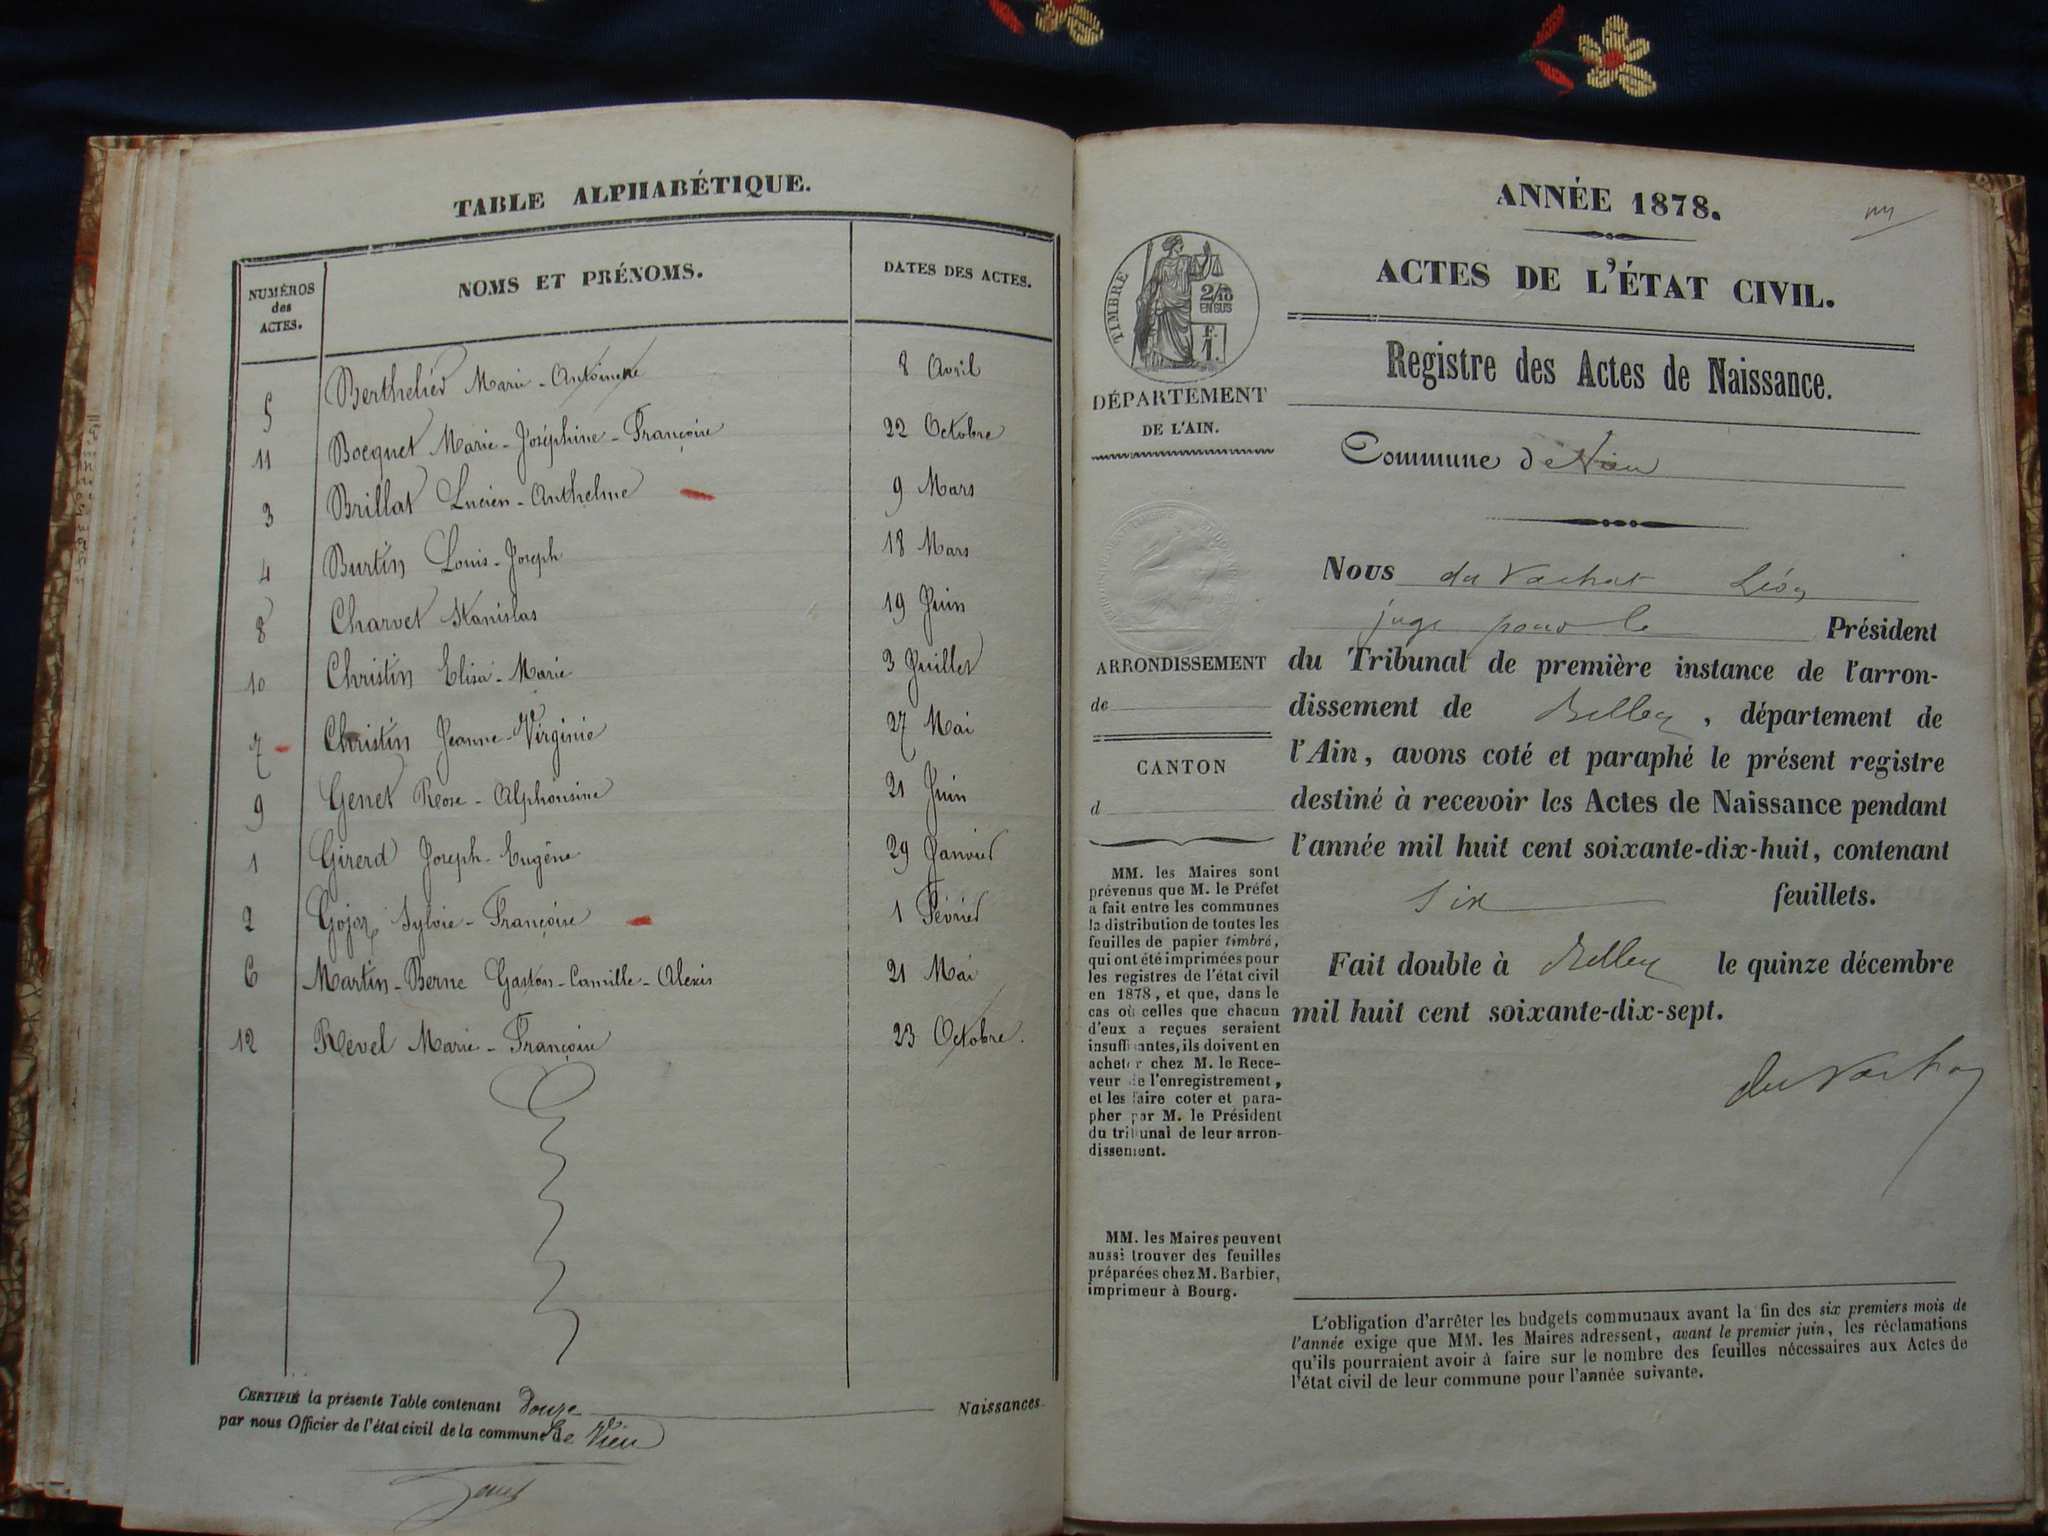 TABLE ALPHABÉTIQUE.
NUMÉROS des ACTES.
NOMS ET PRÉNOMS.
DATES DES ACTES.
5 Berthelier Marie-Antoinette 8 Avril
11 Bocquet Marie-Joséphine-Françoise 22 Octobre
3 Brillat Lucien-Anthelme 9 Mars
4 Burtin Louis-Joseph 18 Mars
8 Charvet Stanislas 19 Juin
10 Christin Elisa-Marie 3 Juillet
7 Christin Jeanne-Virginie 27 Mai
9 Genet Rose-Alphonsine 21 Juin
1 Girerd Joseph-Eugène 29 Janvier
2 Gojoz Sylvie-Françoise 1 Février
6 Martin-Berne Gaston-Camille-Alexis 21 Mai
12 Revel Marie-Françoise 23 Octobre.
CERTIFIÉ la présente Table contenant Douze Naissances
par nous Officier de l'état civil de la commune de Vieu
ANNÉE 1878.
ACTES DE L'ÉTAT CIVIL.
TIMBRE
2/10
EN SUS
F.
1.
DÉPARTEMENT
DE L'AIN.
ARRONDISSEMENT
de
CANTON
d
MM. les Maires sont
prévenus que M. le Préfet
a fait entre les communes
la distribution de toutes les
feuilles de papier timbré,
qui ont été imprimées pour
les registres de l'état civil
en 1878, et que, dans le
cas où celles que chacun
d'eux a reçues seraient
insuffisantes, ils doivent en
acheter chez M. le Rece-
veur de l'enregistrement,
et les faire coter et para-
pher par M. le Président
du tribunal de leur arron-
dissement.
MM. les Maires peuvent
aussi trouver des feuilles
préparées chez M. Barbier,
imprimeur à Bourg.
Registre des Actes de Naissance.
Commune de Vieu
Nous du Vachat Léon
juge pour le Président
du Tribunal de première instance de l'arron-
dissement de Belley, département de
l'Ain, avons coté et paraphé le présent registre
destiné à recevoir les Actes de Naissance pendant
l'année mil huit cent soixante-dix-huit, contenant
six feuillets.
Fait double à Belley le quinze décembre
mil huit cent soixante-dix-sept.
du Vachat
L'obligation d'arrêter les budgets communaux avant la fin des six premiers mois de
l'année exige que MM. les Maires adressent, avant le premier juin, les réclamations
qu'ils pourraient avoir à faire sur le nombre des feuilles nécessaires aux Actes de
l'état civil de leur commune pour l'année suivante.